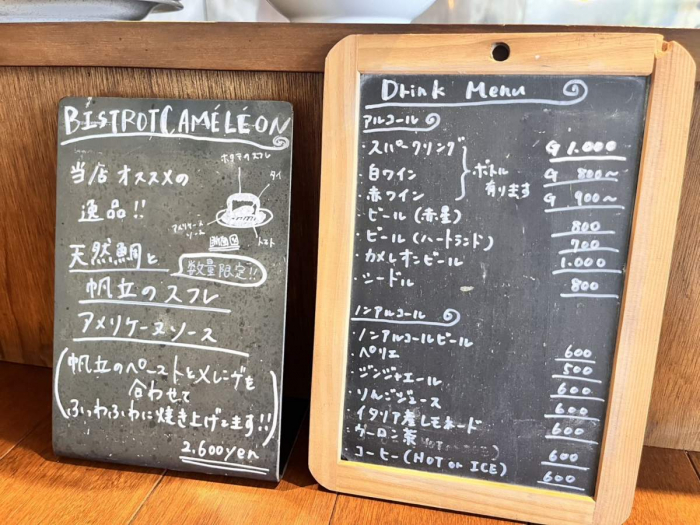 BISTROT CAMÉLÉON
当店オススメの
逸品!!
ホタテのスフレ
タイ
アメリケーヌ
ソース
トマト
断面図
天然鯛と
数量限定!!
帆立のスフレ
アメリケーヌソース
(帆立のペーストとメレンゲを
合わせて
ふっわふわに焼き上げます!!)
2,600yen
Drink Menu
アルコール
・スパークリング G 1.000
・白ワイン G 800〜
・赤ワイン G 900〜
ボトル
有ります
・ビール(赤星) 800
・ビール(ハートランド) 700
・カメレオンビール 1.000
・シードル 800
ノンアルコール
・ノンアルコールビール 600
・ペリエ 500
・ジンジャエール 600
・りんごジュース 600
・イタリア産レモネード 600
・ウーロン茶 600
・コーヒー(HOT or ICE) 600